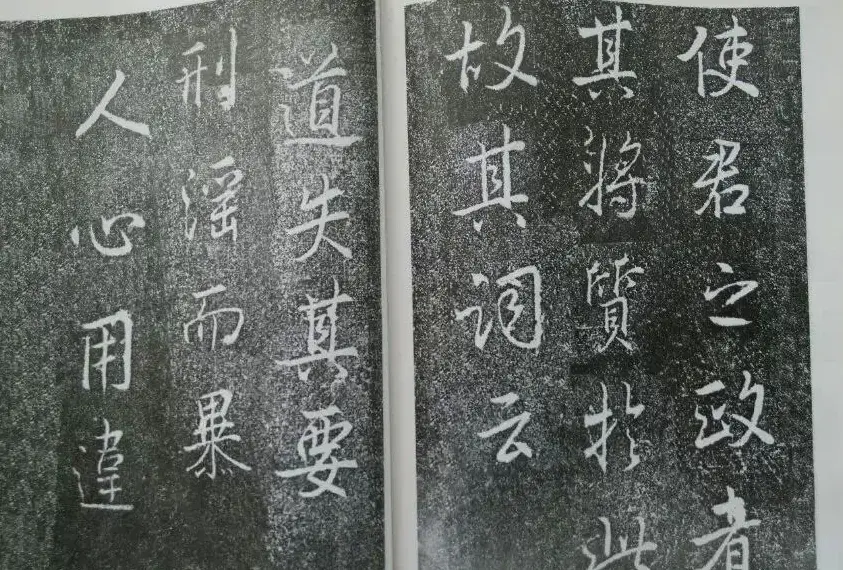 使君之政者
其將質於此
故其詞云
道失其要
刑淫而暴
人心用違